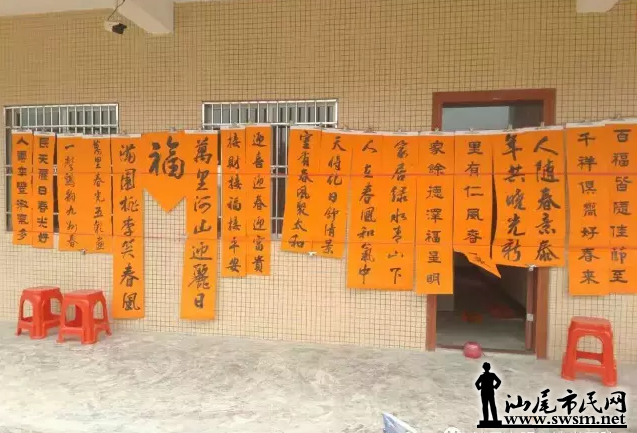 百福皆隨佳節至
千祥俱好春來
人隨春意泰
年共曉光新
里有仁風春
家餘德澤福星明
家居綠水青山下
人在春風和氣中
天將化日舒清景
室有春風聚太和
迎喜迎春迎富貴
接財接福接平安
萬里河山迎麗日
福
滿園桃李笑春風
萬里春光五彩
一聲九州春
天麗日春光好
人壽年豐淑氣多
汕尾市民网
www.swsm.net